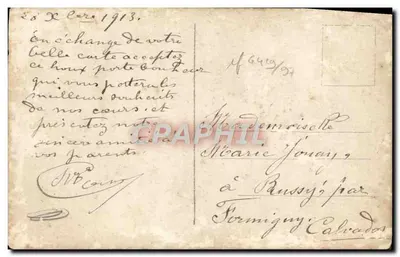 28 Xbre 1913.
En échange de votre
belle carte acceptez
ce houx porte bonheur
qui vous portera les
meilleurs souhaits
de nos cœurs et
présentez notre
sincère amitié à
vos parents
Mademoiselle
Marie Jouan,
à Russy, par
Formigny,
Calvados
CARTEPHILIE